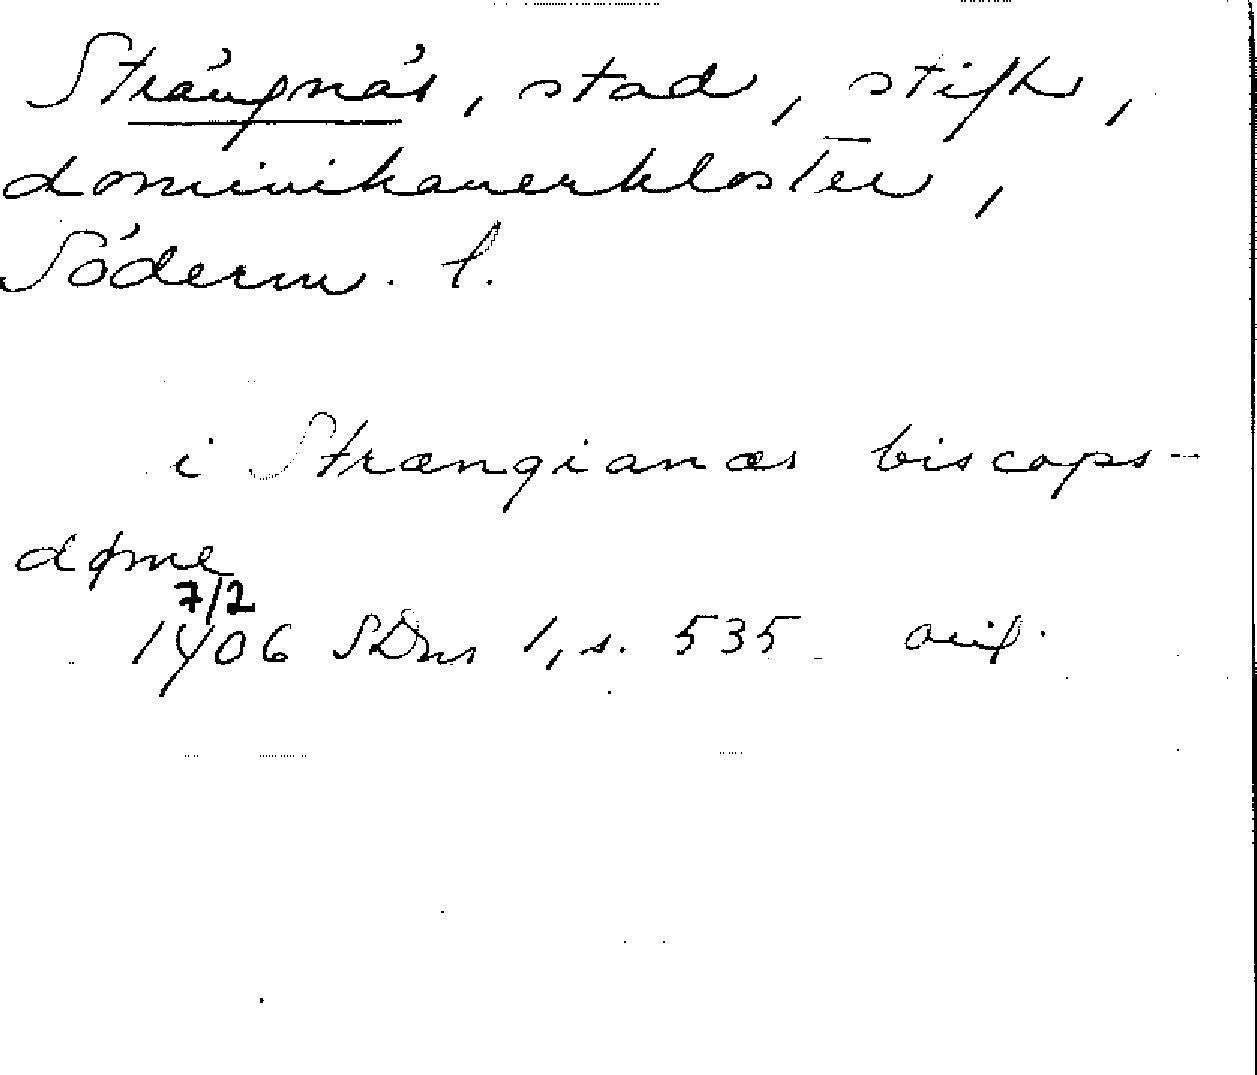 Strängnäs, stad, stift,
dominikanerkloster,
Söderm. l.
i Strængianæs biscops-
døme
7/2
1406 SDns 1, s. 535 avs.